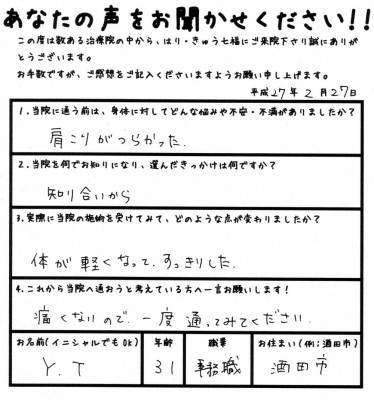 あなたの声をお聞かせください!!
この度は数ある治療院の中から、はり・きゅう七福にご来院下さり誠にありが
とうございます。
お手数ですが、ご感想をご記入くださいますようお願い申し上げます。
平成27年2月27日
1.当院に通う前は、身体に対してどんな悩みや不安・不満がありましたか?
肩こりがつらかった.
2.当院を何でお知りになり、選んだきっかけは何ですか?
知り合いから
3.実際に当院の施術を受けてみて、どのような点が変わりましたか?
体が軽くなって、すっきりした.
4.これから当院へ通おうと考えている方へ一言お願いします!
痛くないので、一度通ってみてください.
お名前(イニシャルでもOK) 年齢 職業 お住まい(例:酒田市)
Y.T 31 事務職 酒田市